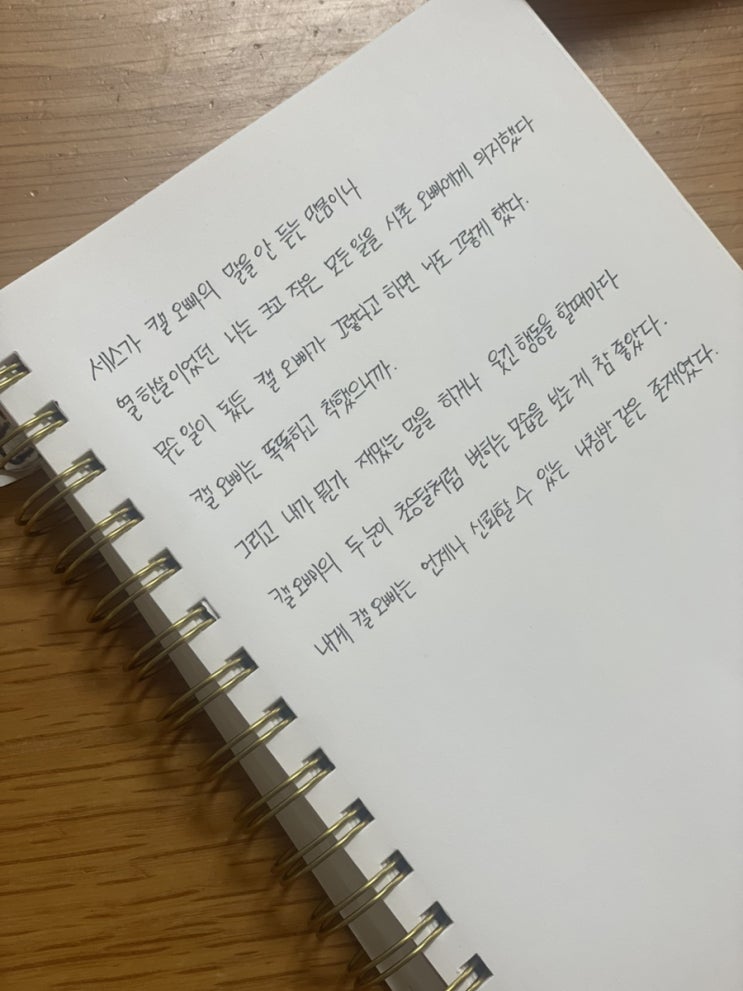 세스가 캘 오빠의 말을 안 듣는 만큼이나
열 한살이었던 나는 크고 작은 모든 일을 사촌 오빠에게 의지했다
무슨 일이 됐든 캘 오빠가 그렇다고 하면 나도 그렇게 했다.
캘 오빠는 똑똑하고 착했으니까.
그리고 내가 뭔가 재밌는 말을 하거나 웃긴 행동을 할때마다
캘 오빠의 두 눈이 초승달처럼 변하는 모습을 보는 게 참 좋았다.
내게 캘 오빠는 언제나 신뢰할 수 있는 나침반 같은 존재였다.